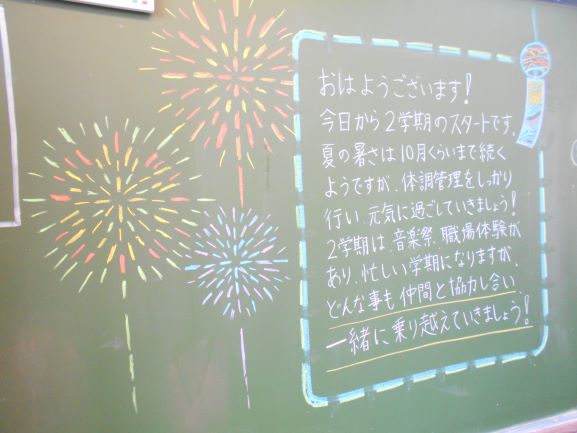 おはようございます！
今日から２学期のスタートです。
夏の暑さは１０月くらいまで続く
ようですが、体調管理をしっかり
行い、元気に過ごしていきましょう！
２学期は、音楽祭、職場体験が
あり、忙しい学期になりますが、
どんな事も仲間と協力し合い
一緒に乗り越えていきましょう！